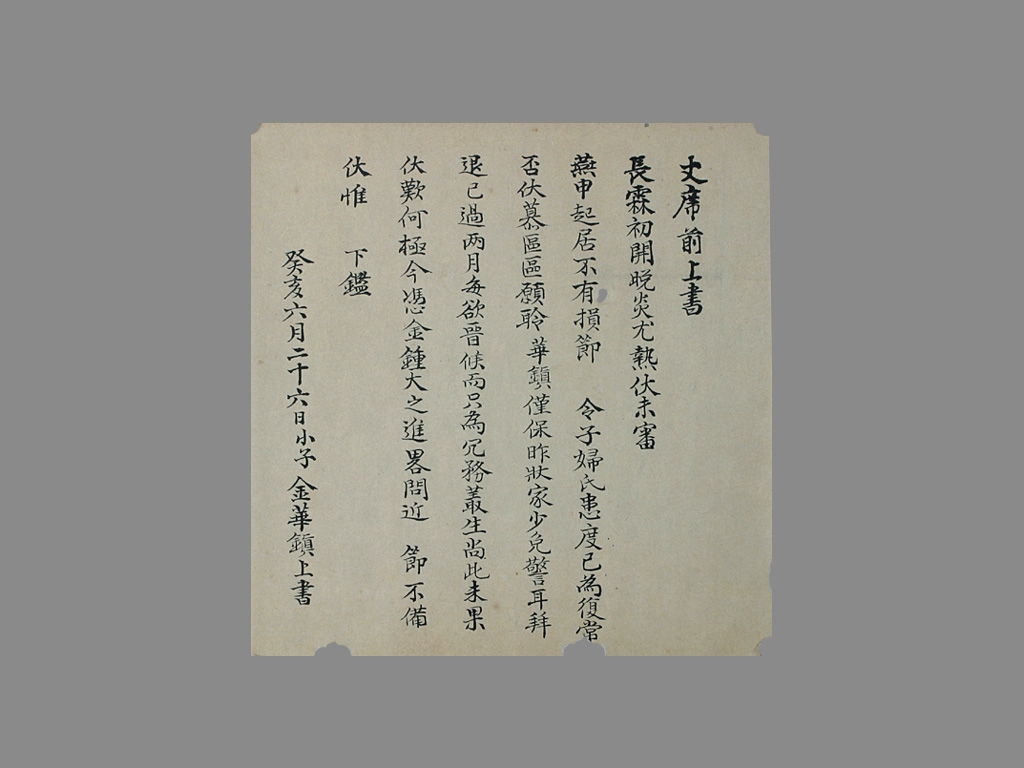 丈席前上書
長霖初開晩炎尤熱伏未審
燕申起居不有損節 令子婦氏患度已為復常
否伏慕區區願聆 華鎭僅保昨狀家少免警耳拜
退已過両月每欲晉候而只為冗務叢生尚此未果
伏歎何極今憑金鍾大之進畧問近 節不備
伏惟 下鑑
癸亥六月二十六日小子 金華鎭上書